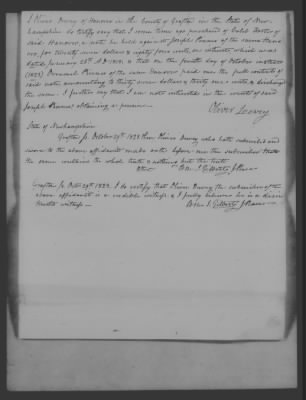 I Oliver Dewey of Hanover in the County of Grafton in the State of New
hampshire do testify and say that I some time ago purchased of Caleb Foster of
said Hanover, a note he held against Joseph of the same
for thirty two dollars & eighty four cents, on interest which was
dated January 28th A.D. 1820. & that on the fourth day of October instant
(1823) Permelia of the same Hanover paid me the full contents of
said note amounting to thirty nine dollars & thirty one cents & discharged
the same. I further say that I am not interested in the event of said
Joseph obtaining a pension
Oliver Dewey
State of Newhampshire
Grafton ss October 29th 1823 Then Oliver Dewey who hath subscribed and
sworn to the above affidavit made oath before me the subscriber that
the same contains the whole truth & nothing but the truth
Attest Ben J. Gilbert, J. Peace
Grafton ss Octr 29th 1823. I do certify that Oliver Dewey the subscriber of the
above affidavit is a credible witness & I fully believe he is a disin
terested witness
Ben J. Gilbert J. Peace